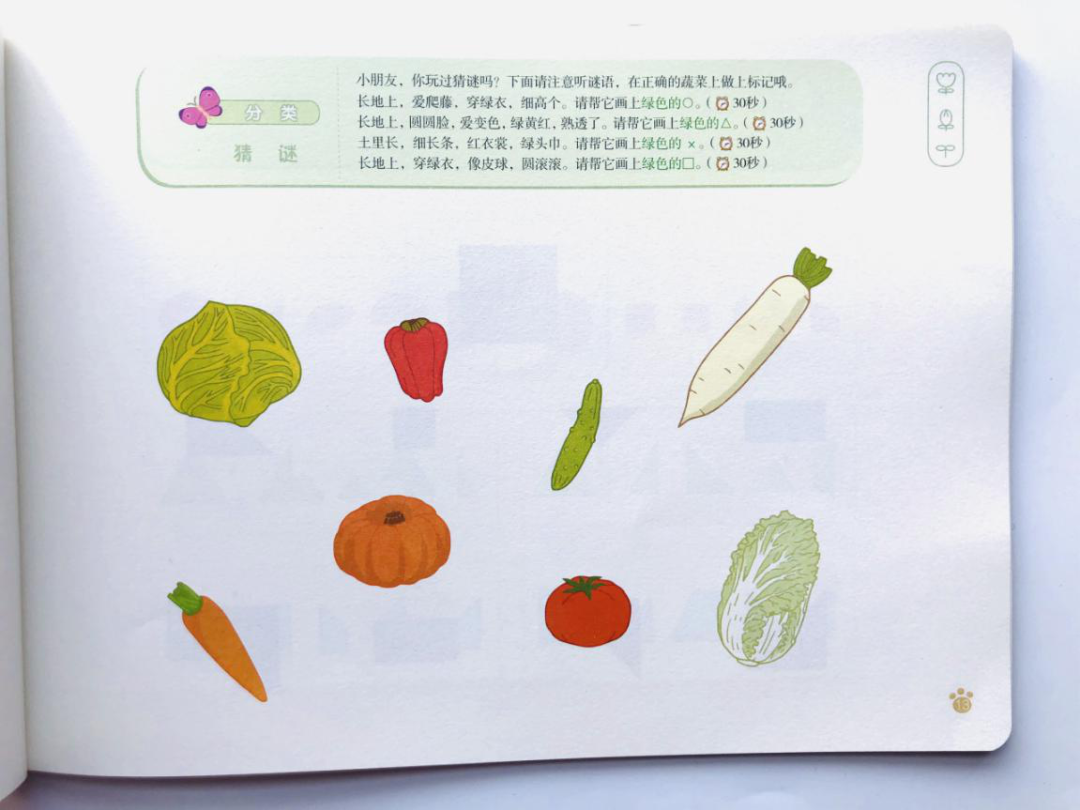 分类
猜谜
小朋友，你玩过猜谜吗？下面请注意听谜语，在正确的蔬菜上做上标记哦。
长地上，爱爬藤，穿绿衣，细高个。请帮它画上绿色的○。（30秒）
长地上，圆圆脸，爱变色，绿黄红，熟透了。请帮它画上绿色的△。（30秒）
土里长，细长条，红衣裳，绿头巾。请帮它画上绿色的 ×。（30秒）
长地上，穿绿衣，像皮球，圆滚滚。请帮它画上绿色的□。（30秒）
13